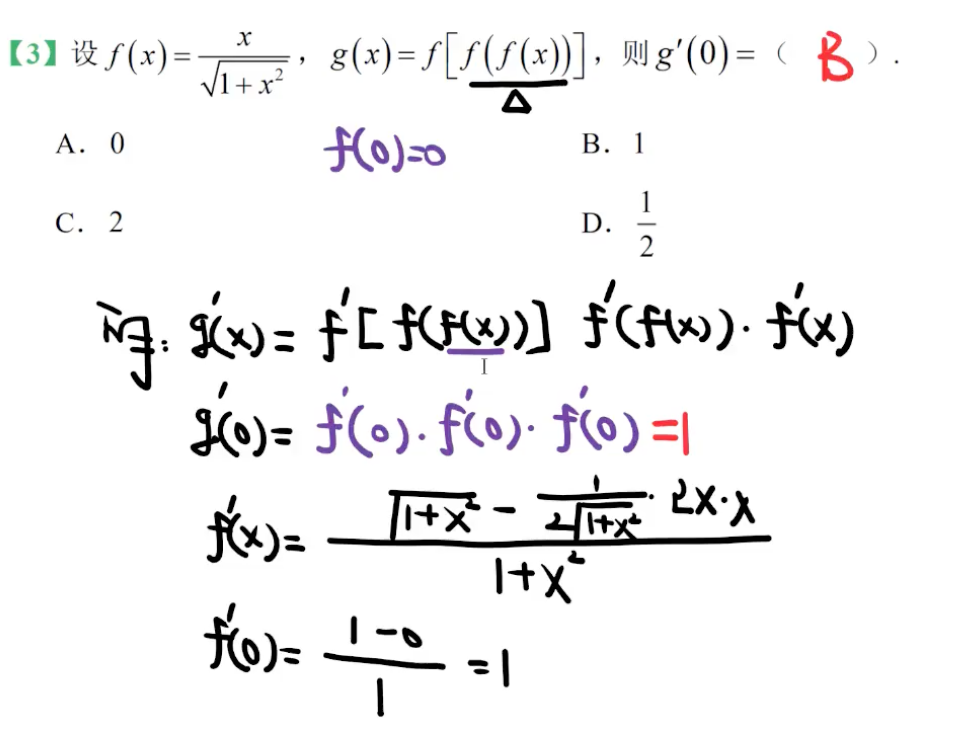 【3】设 f(x) = x/√(1+x²)，g(x) = f[f(f(x))]，则 g′(0) =（ B ）.
Δ
A. 0 f(0)=0 B. 1
C. 2 D. 1/2
g′(x) = f′[f(f(x))] f′(f(x))·f′(x)
g′(0) = f′(0)·f′(0)·f′(0) = 1
f′(x) = (√(1+x²) - 1/(2√(1+x²))·2x·x)/(1+x²)
f′(0) = (1-0)/1 = 1